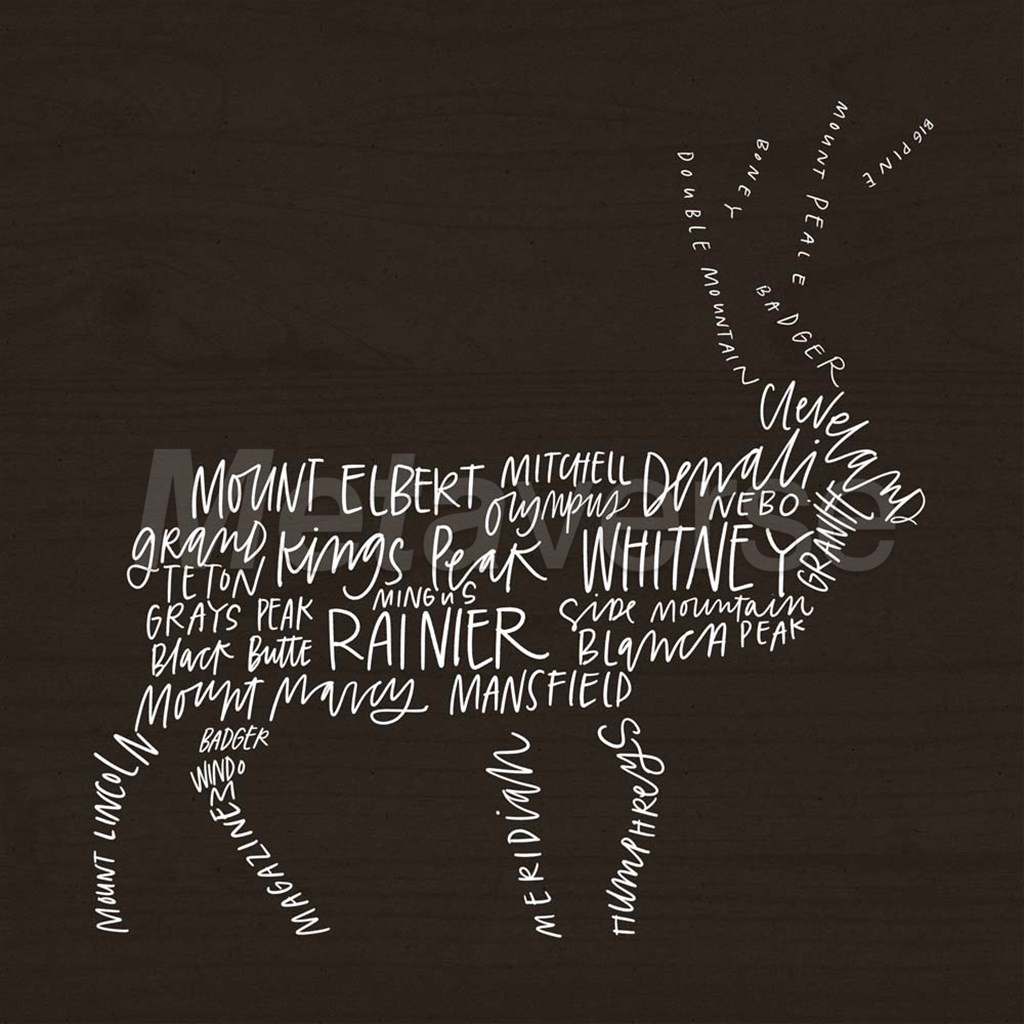 DOUBLE MOUNTAIN
BONEY
MOUNT PEALE
BIG PINE
BADGER
Cleveland
MOUNT ELBERT
MITCHELL
Denali
Olympus
NEBO
GRANITE
grand
TETON
Kings Peak
WHITNEY
MINGUS
GRAYS PEAK
RAINIER
Side mountain
Black Butte
Blanca PEAK
Mount Marcy
MANSFIELD
MOUNT LINCOLN
BADGER
WINDOM
MAGAZINE
MERIDIAN
HUMPHREYS
Metaverse